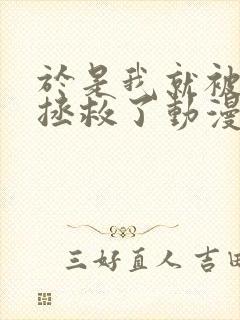 於是我就被
拯救了動漫
三好直人 吉田